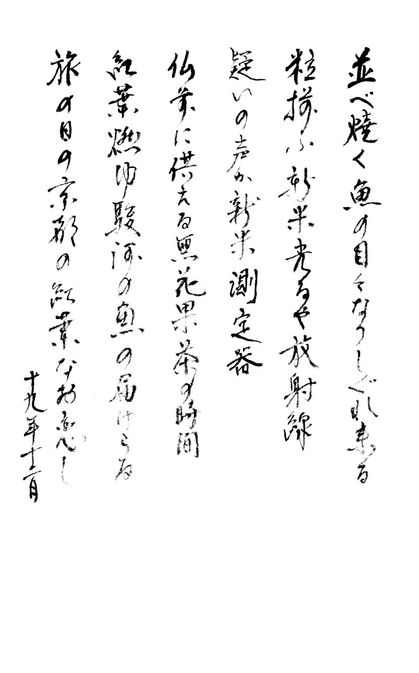 並べ焼く魚の目々なりしぐれ来る
粒揃ふ新米光るや放射線
疑いの声か新米測定器
仏前に供える無花果茶の時間
紅葉燃ゆ駿河の魚の届けらる
旅の日の京都の紅葉なお恋し
十九年十二月